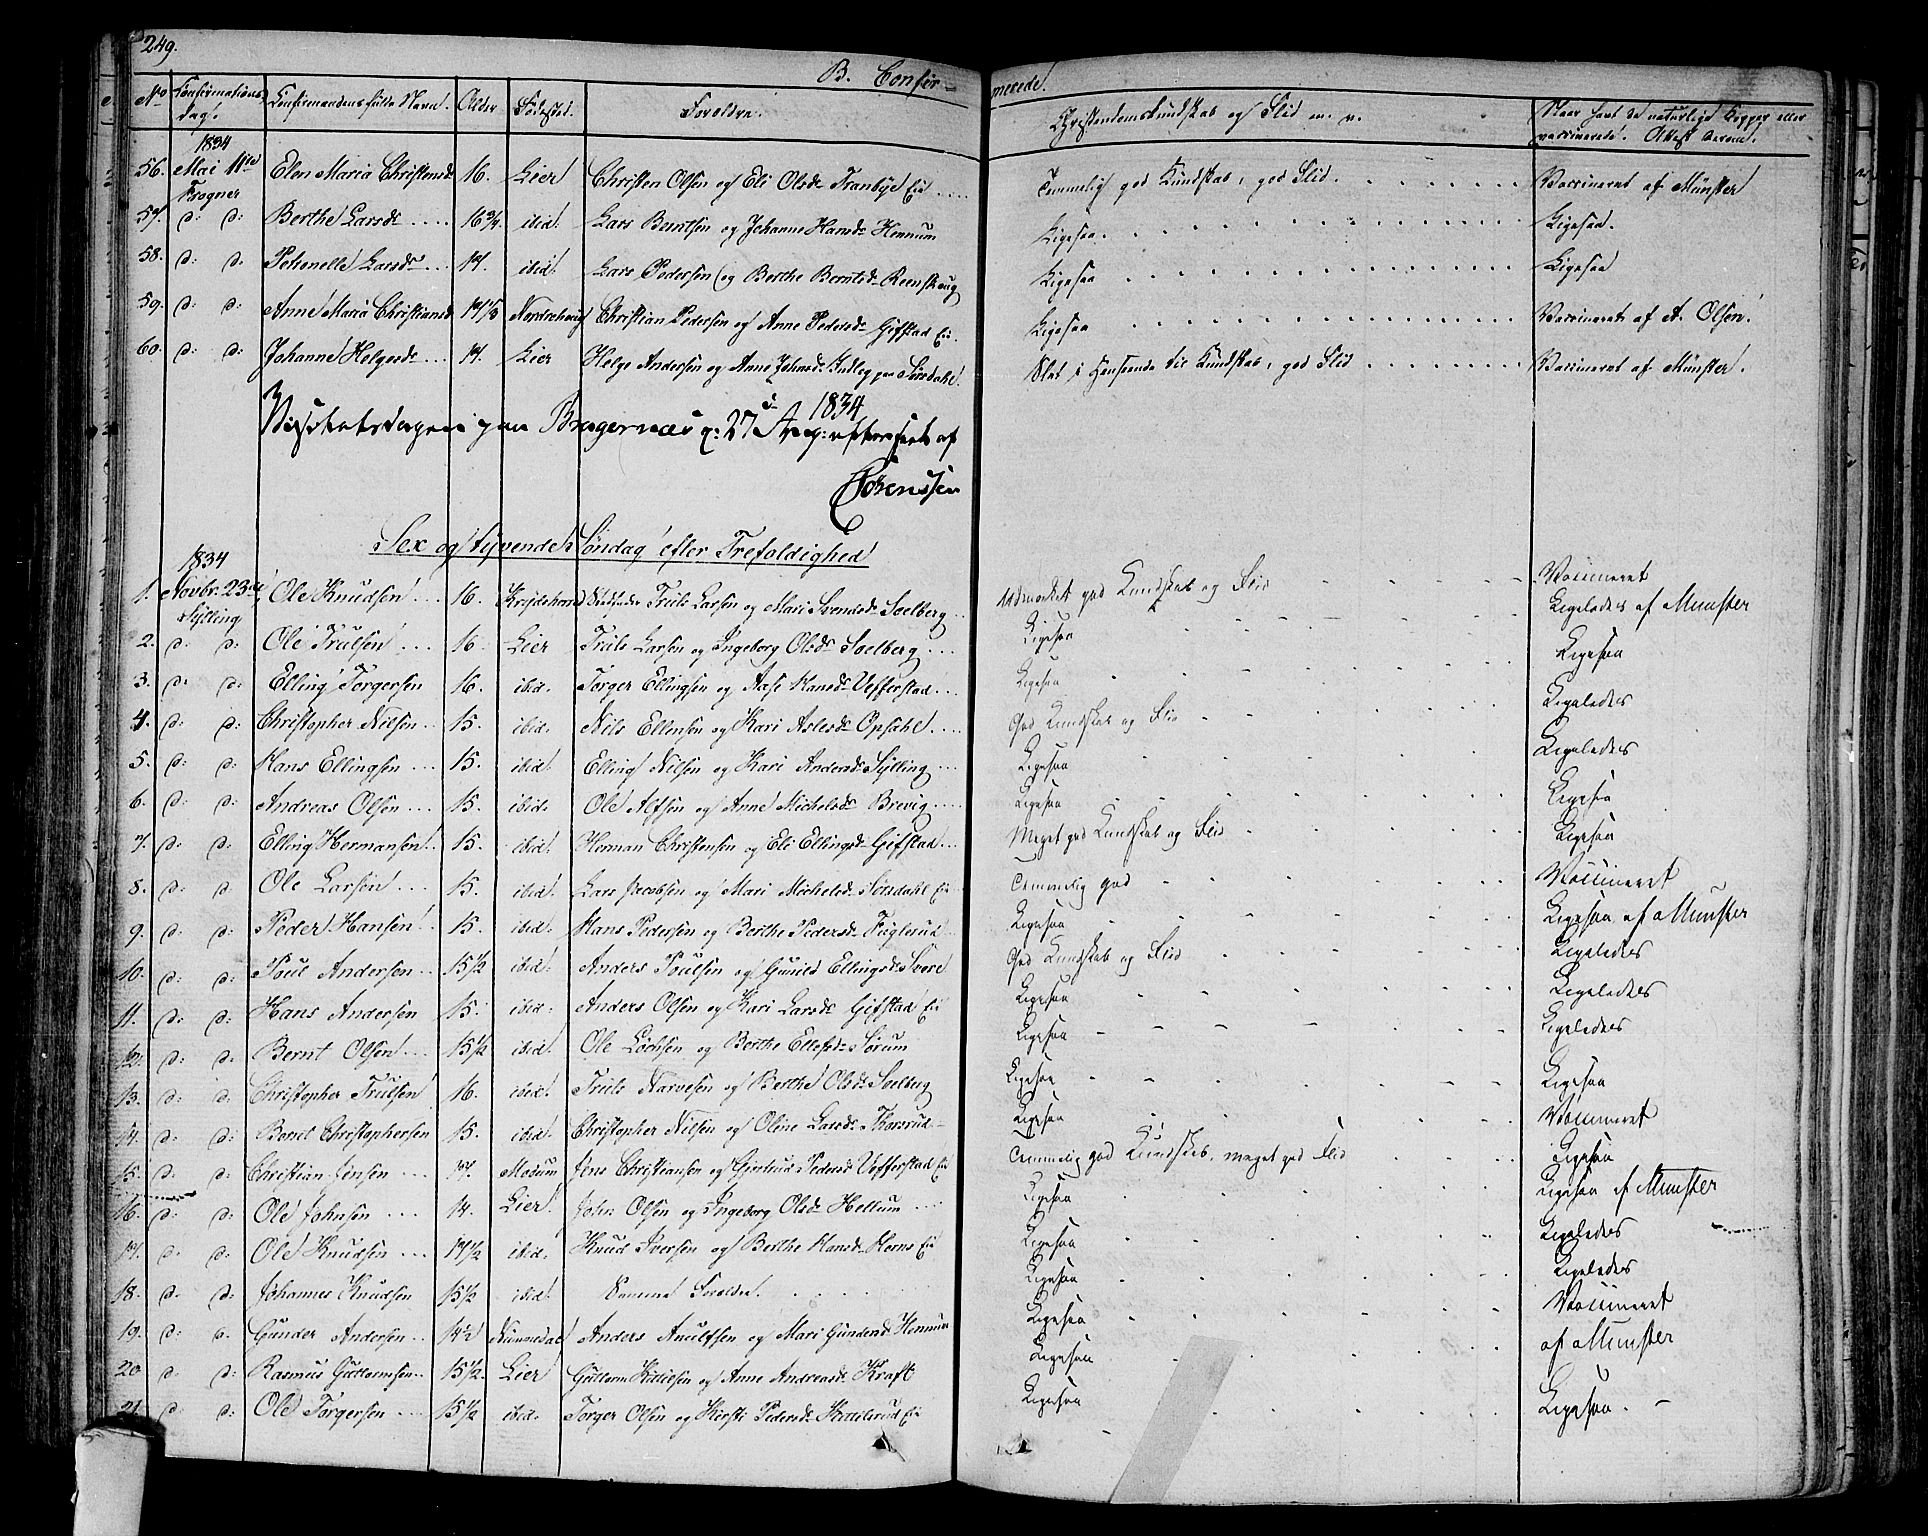 249.
B. Confir-
merede.
No
Confirmations
dag.
Confirmandens fulde Navn.
Alder
Fødested.
Forældre.
Christendomskundskab og Flid m. v.
Naar havt de naturlige Kopper eller
vaccinerede. Attest derom.
1834
56. Mai 11te Elen Maria Christensd 16. Lier Christen Olsen og Eli Olsd Tranbye Eie Temmelig god Kundskab, god Flid. Vaccineret af Münster
Frogner
57. d: d: Berthe Larsd 16 3/4 ibid. Lars Berntsen og Johanne Hansd Hennum Ligesaa. Ligesaa.
58. d: d: Petronelle Larsd 17. ibid Lars Pedersen og Berthe Berntsd Reenskoug Ligesaa Ligesaa
59. d: d: Anne Maria Christiansd 17 1/3 Norderhoug Christian Pedersen og Anne Pedersd Gifstad Eie. Ligesaa Vaccineret af A. Olsen.
60. d: d: Johanne Helgesd 17. Lier Helge Andersen og Anne Johansd Indleg paa Sørsdahl Slet i Henseende til Kundskab, god Flid Vaccineret af Münster.
Visitatsdagen paa Bragernæs d. 27 Aug: 1834 efterseet af
Sørenssen
Sex og tyvende Søndag efter Trefoldighed
1834
1. Novbr. 23de Ole Knudsen 16. Krydsherred Truls Larsen og Mari Svensd Soelberg Udmærket god Kundskab og Flid Vaccineret
Sylling Ligeledes af Münster
2. d: d: Ole Trulsen 16. Lier Truls Larsen og Ingeborg Olsd Soelberg Ligesaa Ligesaa
3. d: d: Elling Torgersen 16. ibid. Torger Ellingsen og Aase Hansd Vefferstad Ligesaa Ligeledes
4. d: d: Christopher Nilsen 15. ibid. Nils Ellensen og Kari Aslesd Opsahl God Kundskab og Flid
5. d: d: Hans Ellingsen 15. ibid. Elling Nilsen og Kari Andersd Sylling Ligesaa Ligeledes
6. d: d: Andreas Olsen 15. ibid. Ole Alfsen og Anne Michelsd Brevig Ligesaa Ligesaa
7. d: d: Elling Hermansen 15. ibid. Herman Christensen og Eli Ellingsd Gifstad Meget god Kundskab og Flid Ligesaa
8. d: d: Ole Larsen 15. ibid. Lars Jacobsen og Mari Michelsd Sørsdahl Eie Temmelig god Vaccineret
9. d: d: Peder Hansen 15. ibid. Hans Pedersen og Berthe Pedersd Fuglerud Ligesaa Ligesaa af Münster
10. d: d: Poul Andersen 15 1/2 ibid. Anders Poulsen og Gunild Ellingsd Svere God Kundskab og Flid Ligeledes
11. d: d: Hans Andersen 15. ibid: Anders Olsen og Kari Larsd Gifstad Eie Ligesaa Ligeledes
12. d: d: Bernt Olsen 15 1/2 ibid. Ole Lochsen og Berthe Ellefsd Sørum Ligesaa Ligeledes
13. d: d: Christopher Trulsen 16. ibid: Truls Narvesen og Berthe Olsd Soelberg Ligesaa Ligesaa
14. d: d: Bernt Christophersen 15. ibid. Christopher Nilsen og Oline Larsd Thorsrud Ligesaa Vaccineret
15. d: d: Christian Jensen 17. Modum Jens Christiansen og Gjertrud Pedersd Vefferstad Eie Temmelig god Kundskab, meget god Flid Ligesaa
16. d: d: Ole Johnsen 14. Lier John Olsen og Ingeborg Olsd Hellum Ligesaa Ligesaa af Münster
17. d: d: Ole Knudsen 17 1/2 ibid. Knud Iversen og Berthe Hansd Horns Eie Ligesaa Ligeledes
18. d. d: Johannes Knudsen 15 1/2 ibid. Samme Forældre. Ligesaa Ligeledes
19. d: d. Gunder Andersen 14 1/2 Nummedal Anders Anulfsen og Mari Gundersd Hennum Ligesaa Vaccineret
af Münster
20 d: d: Rasmus Guttormsen 15 1/2 Lier Guttorm Kittelsen og Anne Andreasd Kraft Ligesaa
21. d: d: Ole Torgersen 15 1/2 ibid. Torger Olsen og Kirsti Pedersd Kittilsrud Eie Ligesaa Ligesaa.